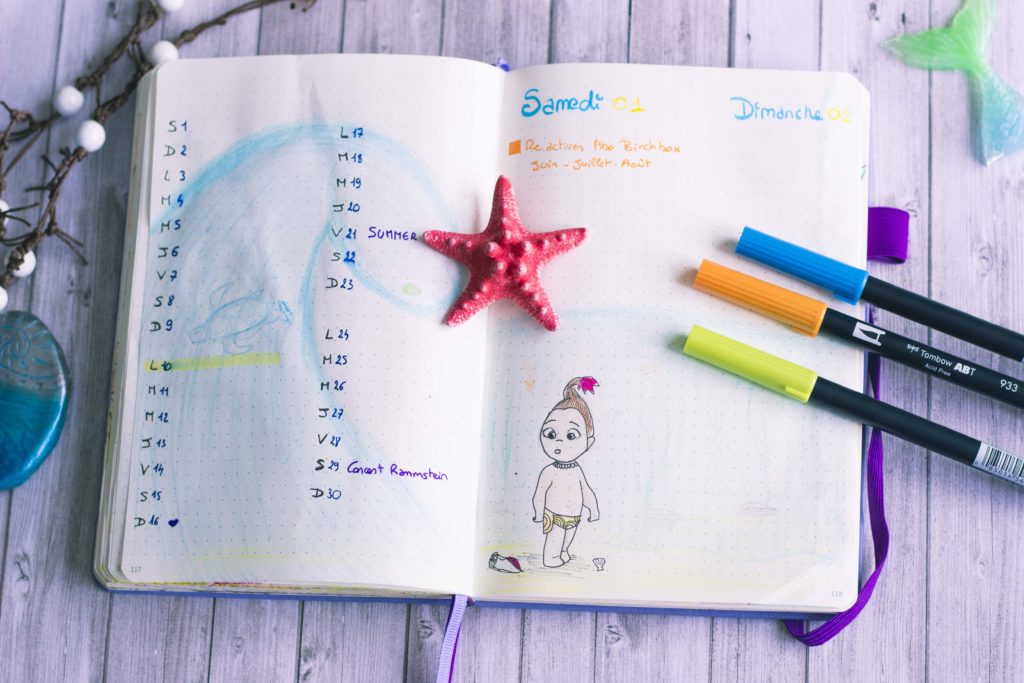 S 1
D 2
L 3
M 4
M 5
J 6
V 7
S 8
D 9
L 10
M 11
M 12
J 13
V 14
S 15
D 16
117
L 17
M 18
M 19
J 20
V 21 SUMMER
S 22
D 23
L 24
M 25
M 26
J 27
V 28
S 29 Concert Rammstein
D 30
Samedi 01
Dimanche 02
Reactiver Abo Birchbox
Juin - Juillet - Août
118
Tombow ABT
Acid Free
933